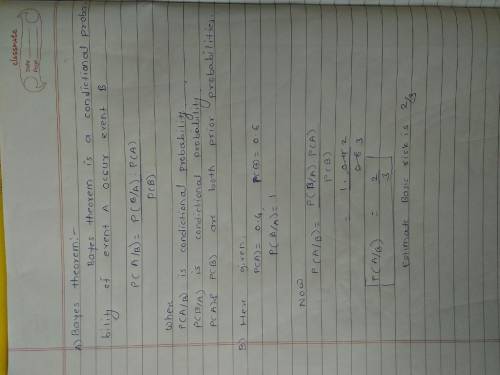 classmate
Date
Page
A) Bayes theorem:-
Bayes theorem is a condictional proba
bility of event A occur event B
P(A/B) = P(B/A) · P(A)
P(B)
When
P(A/B) is condictional probability
P(B/A) is condictional probability
P(A) & P(B) are both prior probabilities.
B) Here given
P(A) = 0.4, P(B) = 0.6
P(A/A) = 1
Now
P(A/B) = P(B/A) · P(A)
P(B)
= 1 · 0.4 2
0.6 3
P(A/B) = 2
3
Estimate Basic risk is 2/3